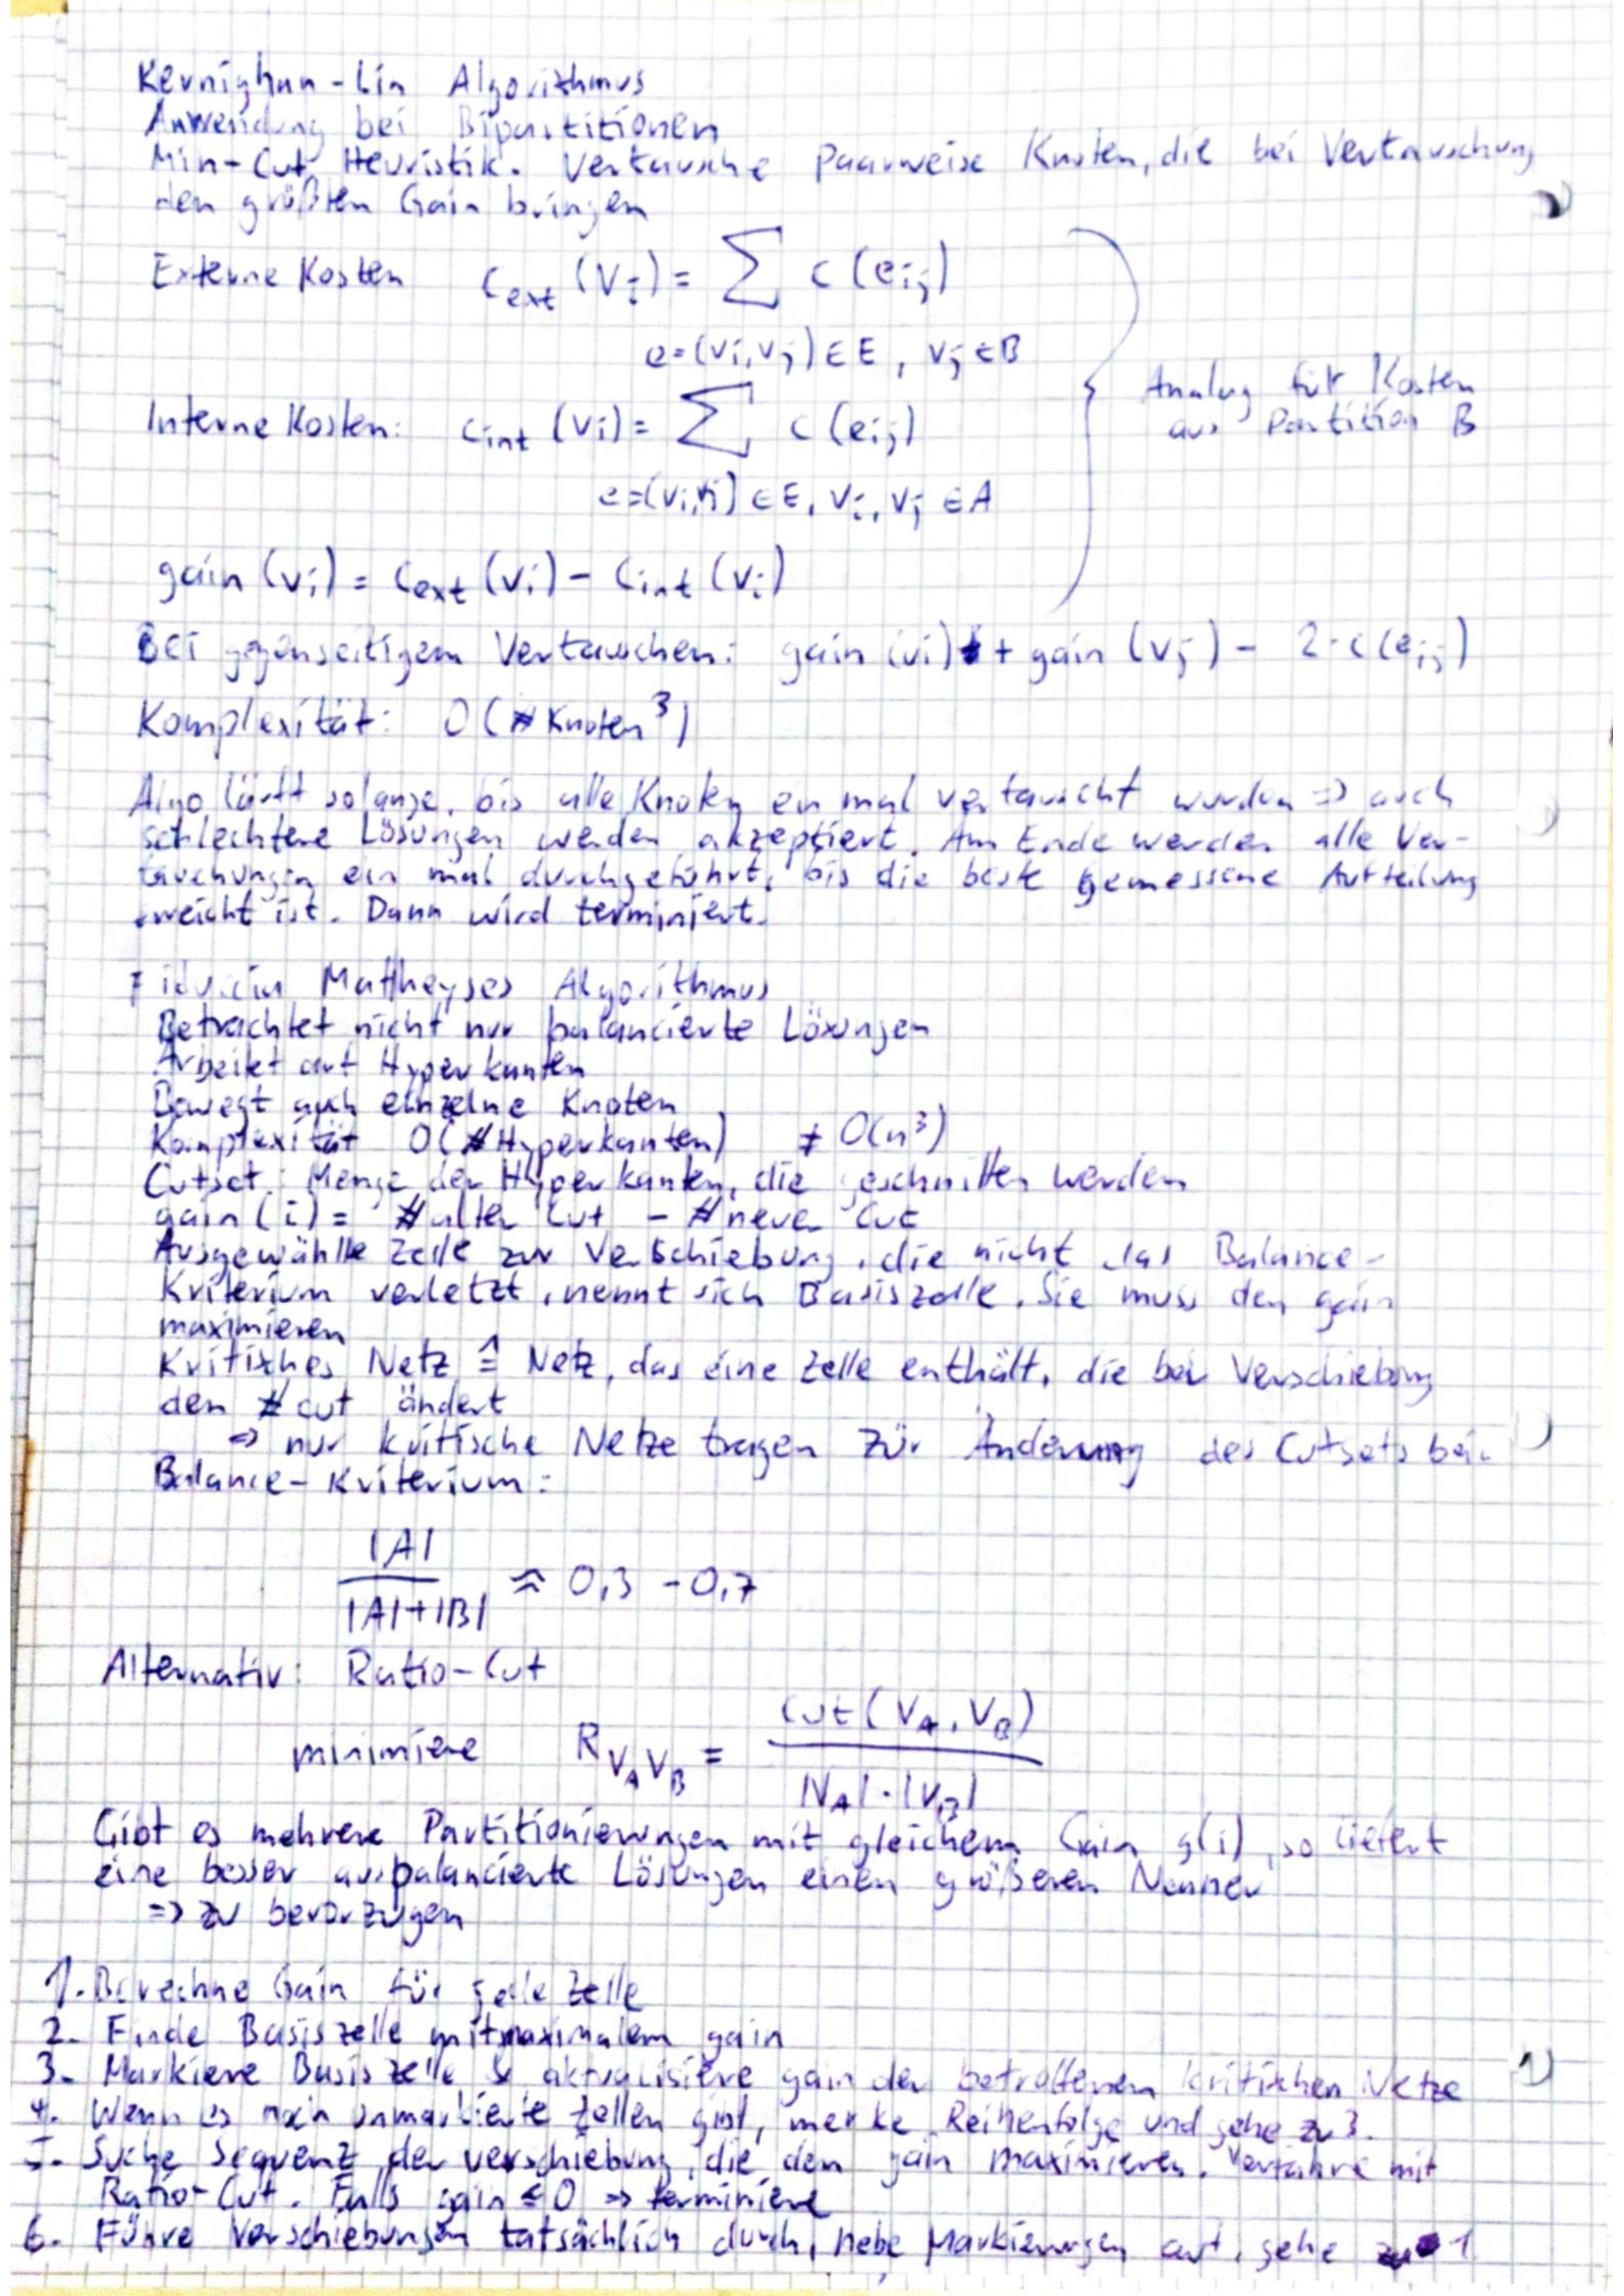 Kernighan-Lin Algorithmus
Anwendung bei Bipartitionen
Min-Cut Heuristik. Vertausche Paarweise Knoten, die bei Vertauschung
den größten Gain bringen
Externe Kosten c_ext (v_i) = ∑ c (e_ij)
e=(vi,vj) ∈ E, vj ∈ B
Interne Kosten: c_int (vi) = ∑ c (e_ij)
e=(vi,vj) ∈ E, vi, vj ∈ A
Analog für Kosten
aus Partition B
gain (vi) = c_ext (vi) - c_int (vi)
Bei gegenseitigem Vertauschen: gain (vi) + gain (vj) - 2·c(e_ij)
Komplexität: O(#Knoten³)
Algo läuft solange, bis alle Knoten ein mal vertauscht wurden => auch
schlechtere Lösungen werden akzeptiert. Am Ende werden alle Ver-
tauchungen ein mal durchgeführt, bis die beste gemessene Aufteilung
erreicht ist. Dann wird terminiert.
Fiduccia Mattheyses Algorithmus
Betrachtet nicht nur balancierte Lösungen
Arbeitet auf Hyperkanten
Bewegt auch einzelne Knoten
Komplexität O(#Hyperkanten) ≠ O(n³)
Cutset: Menge der Hyperkanten, die geschnitten werden
gain(i) = #alter Cut - #neuer Cut
Ausgewählte Zelle zur Verschiebung, die nicht das Balance-
Kriterium verletzt, nennt sich Basiszelle. Sie muss den gain
maximieren
Kritisches Netz ≙ Netz, das eine Zelle enthält, die bei Verschiebung
den #cut ändert
=> nur kritische Netze tragen zur Änderung des Cutsets bei.
Balance-Kriterium:
|A| / (|A|+|B|) ≈ 0,3 - 0,7
Alternativ: Ratio-Cut
minimiere R_VAVB = cut(V_A, V_B) / (|V_A|·|V_B|)
Gibt es mehrere Partitionierungen mit gleichem Gain g(i), so liefert
eine besser ausbalancierte Lösungen einen größeren Nenner
=> zu bevorzugen
1. Berechne Gain für jede Zelle
2. Finde Basiszelle mit maximalem gain
3. Markiere Basiszelle & aktualisiere gain der betroffenen kritischen Netze
4. Wenn es noch unmarkierte Zellen gibt, merke Reihenfolge und gehe zu 3.
5. Suche Sequenz der verschiebung, die den gain maximieren. Verfahre mit
Ratio-Cut. Falls gain ≤ 0 => terminiere
6. Führe Verschiebungen tatsächlich durch, hebe Markierungen auf, gehe zu 1